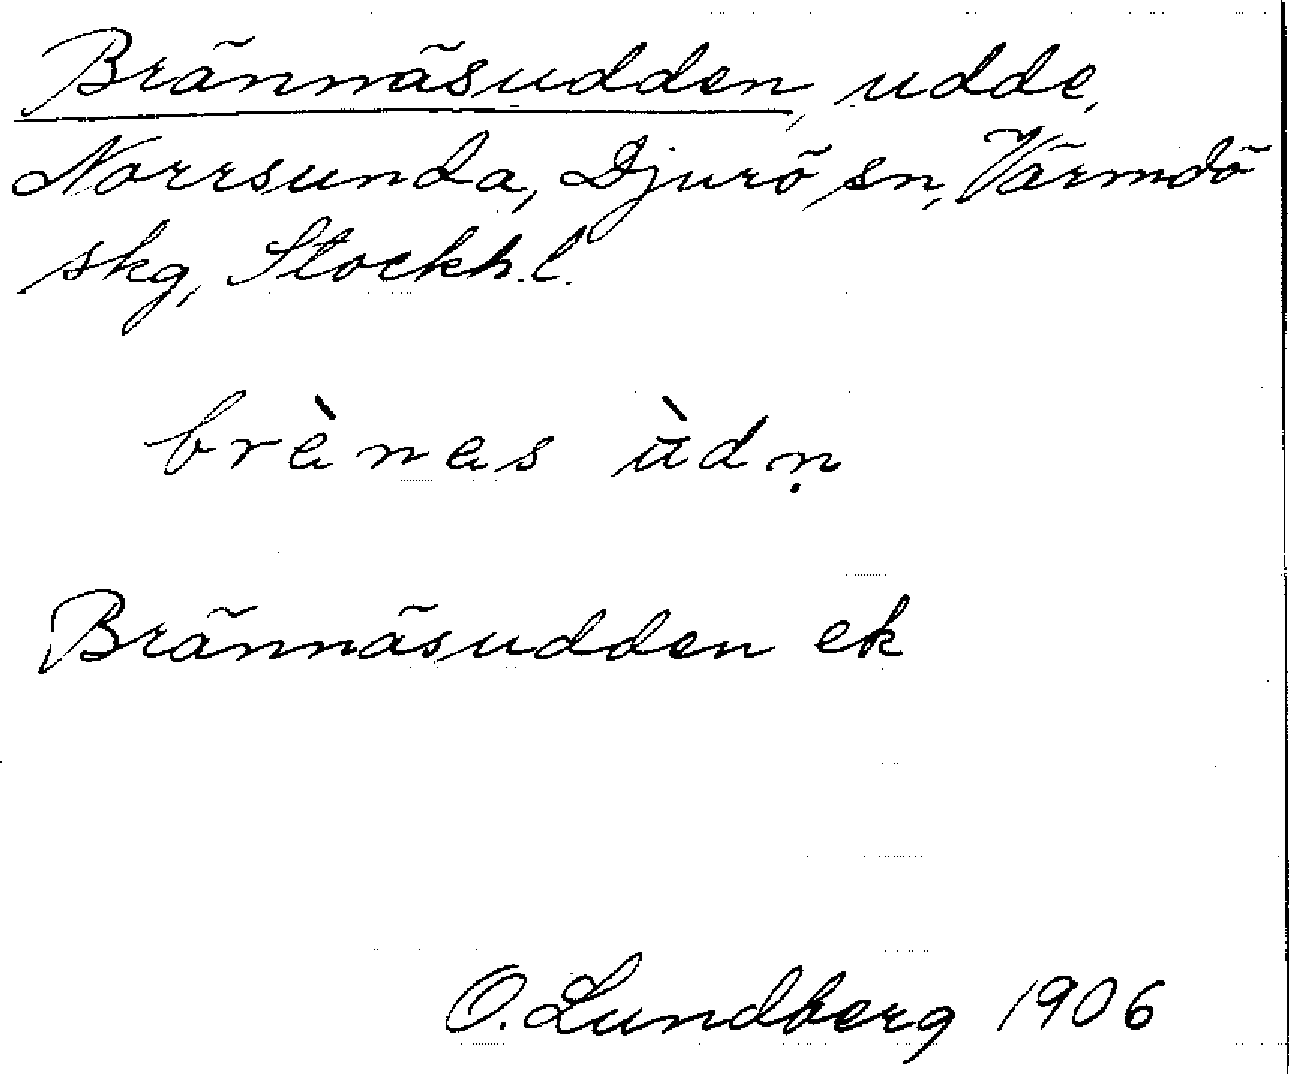 Brännäsudden, udde,
Norrsunda, Djurö sn, Värmdö
skg, Stockh. l.
brènas ùdṇ
Brännäsudden ek
O. Lundberg 1906